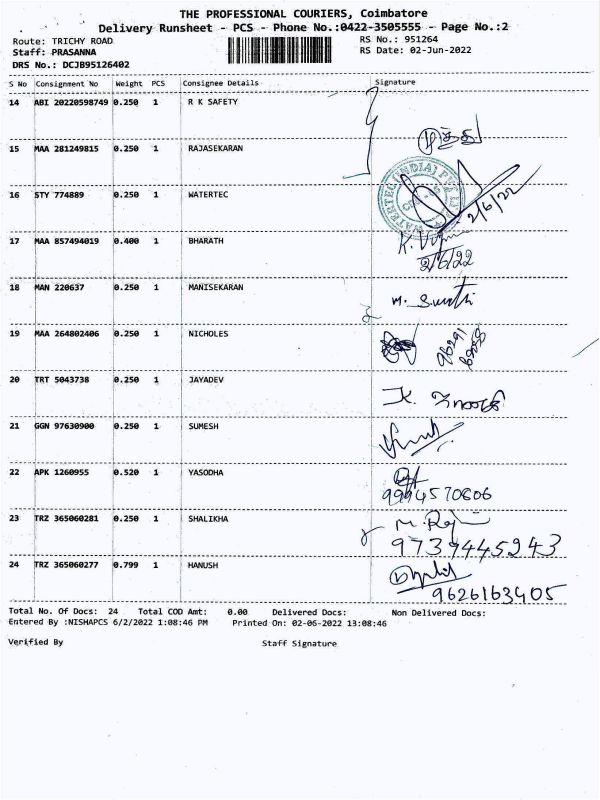 THE PROFESSIONAL COURIERS, Coimbatore
Delivery Runsheet - PCS - Phone No.:0422-3505555 - Page No.:2
Route: TRICHY ROAD RS No.: 951264
Staff: PRASANNA RS Date: 02-Jun-2022
DRS No.: DCJB95126402
S No Consignment No Weight PCS Consignee Details Signature
14 ABI 20220598749 0.250 1 R K SAFETY
15 MAA 281249815 0.250 1 RAJASEKARAN
16 STY 774889 0.250 1 WATERTEC 2/6/22
17 MAA 857494019 0.400 1 BHARATH
2/6/22
18 MAN 220637 0.250 1 MANISEKARAN
19 MAA 264802406 0.250 1 NICHOLES
20 TRT 5043738 0.250 1 JAYADEV
21 GGN 97630900 0.250 1 SUMESH
22 APK 1260955 0.520 1 YASODHA
9994570606
23 TRZ 365060281 0.250 1 SHALIKHA
9739445243
24 TRZ 365060277 0.799 1 HANUSH
9626163405
Total No. Of Docs: 24 Total COD Amt: 0.00 Delivered Docs: Non Delivered Docs:
Entered By :NISHAPCS 6/2/2022 1:08:46 PM Printed On: 02-06-2022 13:08:46
Verified By Staff Signature